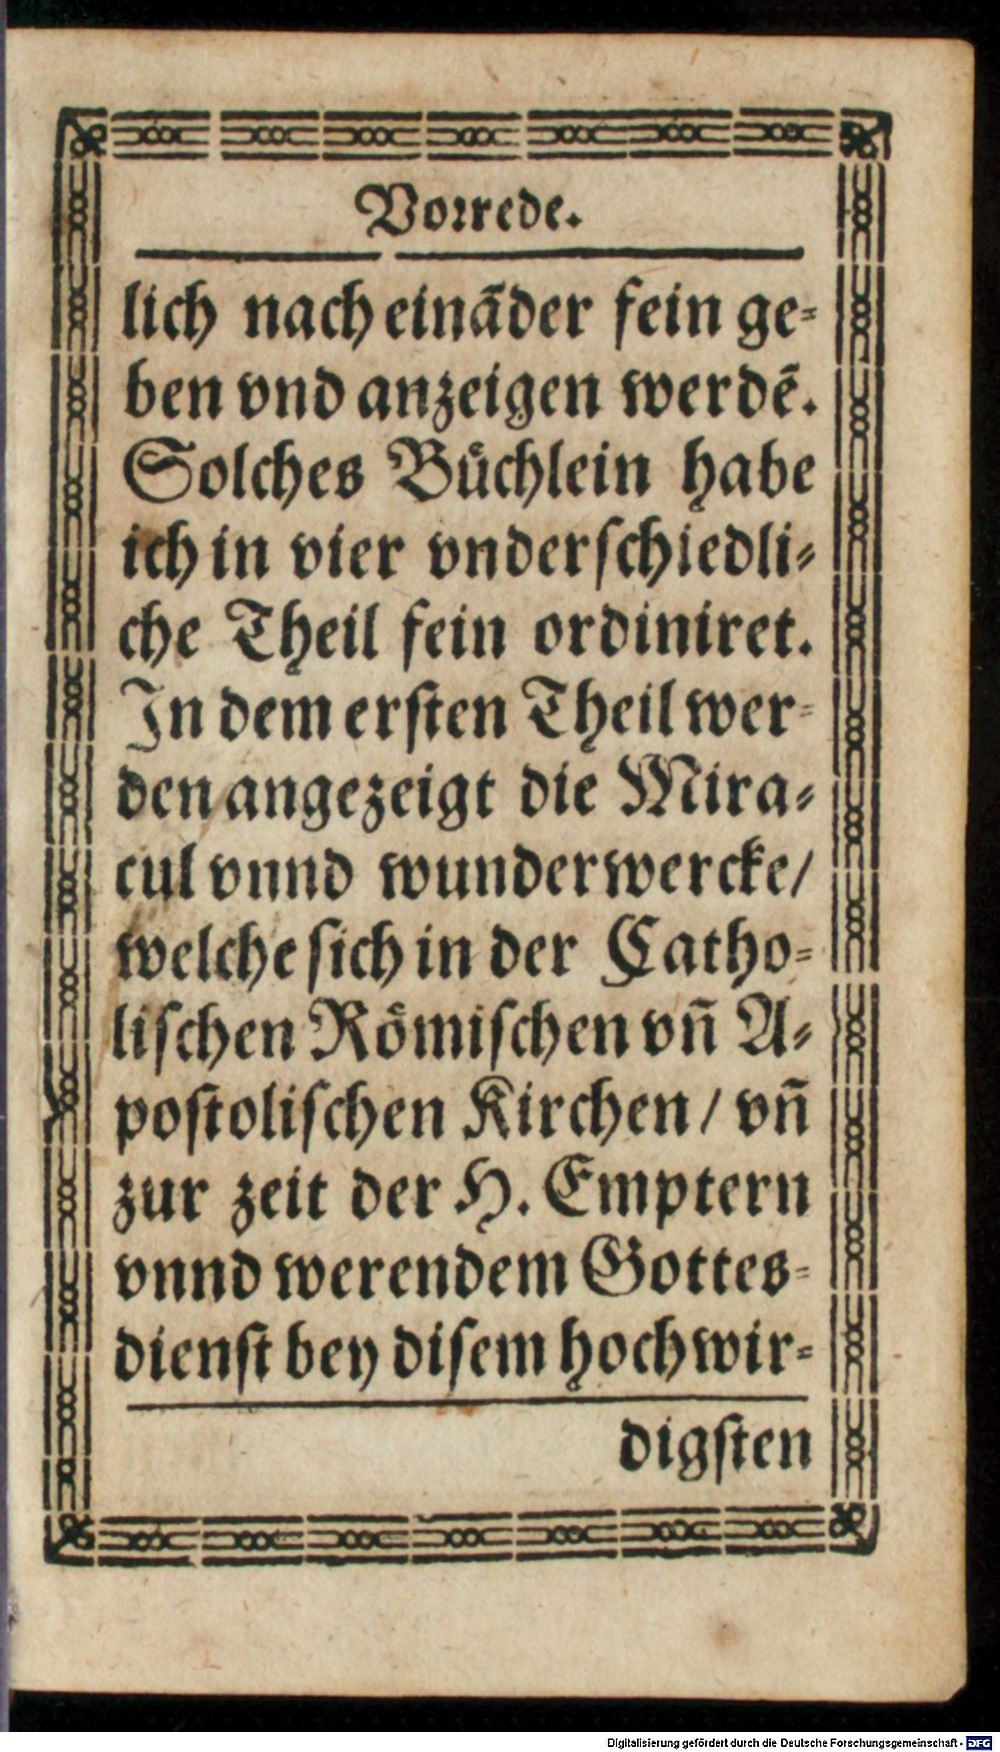 Vorrede.
lich nach einãder fein ge-
ben vnd anzeigen werdẽ.
Solches Bůchlein habe
ich in vier vnderſchiedli-
che Theil fein ordiniret.
In dem erſten Theil wer-
den angezeigt die Mira-
cul vnnd wunderwercke/
welche ſich in der Catho-
liſchen Roͤmiſchen vñ A-
poſtoliſchen Kirchen/ vñ
zur zeit der H. Emptern
vnnd werendem Gottes-
dienſt bey diſem hochwir-
digſten
Digitalisierung gefördert durch die Deutsche Forschungsgemeinschaft - DFG